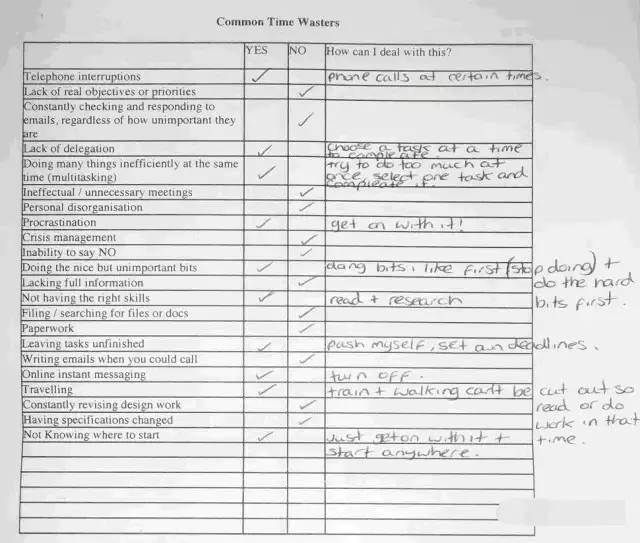 Common Time Wasters
YES NO How can I deal with this?
Telephone interruptions ✓ phone calls at certain times.
Lack of real objectives or priorities ✓
Constantly checking and responding to
emails, regardless of how unimportant they ✓
are
Lack of delegation ✓ choose a task at a time
to compleate.
Doing many things inefficiently at the same try to do too much at
time (multitasking) ✓ once, select one task and
compleate it.
Ineffectual / unnecessary meetings ✓
Personal disorganisation ✓
Procrastination ✓ get on with it!
Crisis management ✓
Inability to say NO ✓
Doing the nice but unimportant bits ✓ doing bits i like first (stop doing) +
do the hard
Lacking full information ✓
Not having the right skills ✓ read + research
bits first.
Filing / searching for files or docs ✓
Paperwork ✓
Leaving tasks unfinished ✓ push myself, set own deadlines.
Writing emails when you could call ✓
Online instant messaging ✓ turn off.
Travelling ✓ train + walking can't be cut out so
Constantly revising design work ✓ read or do
Having specifications changed ✓ work in that
Not Knowing where to start ✓ Just get on with it + time.
start anywhere.